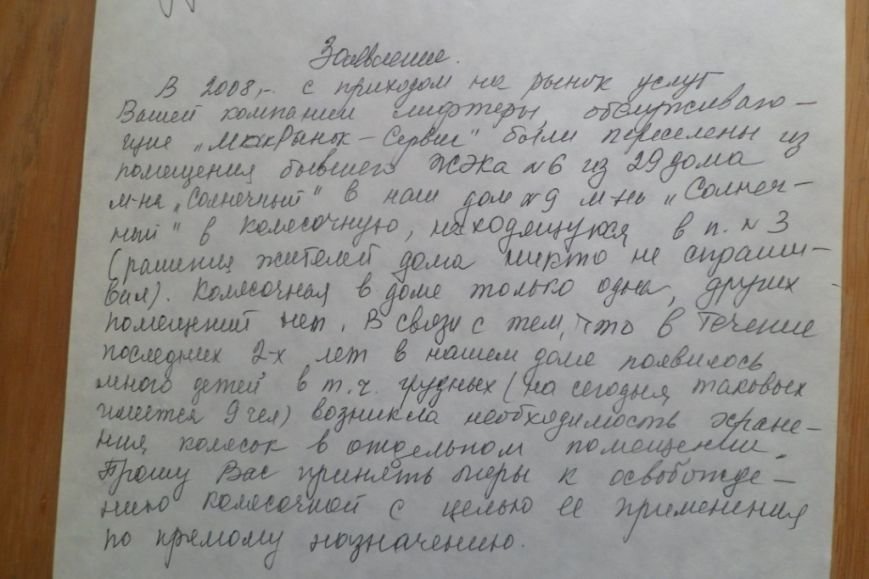 Заявление.
В 2008г. с приходом на рынок услуг
Вашей компании лифтеры, обслуживаю-
щие „МкжРынок-Сервис" были переселены из
помещения бывшего ЖЭКа №6 из 29 дома
м-на „Солнечный" в наш дом №9 м-нь „Солнеч-
ный" в колясочную, находящуюся в п. №3
(рашения жителей дома никто не спраши-
вал). Колясочная в доме только одна, других
помещений нет. В связи с тем, что в течение
последних 2-х лет в нашем доме появилось
много детей в т.ч. грудных (на сегодня таковых
имеется 9 чел) возникла необходимость хране-
ния колясок в отдельном помещении.
Прошу Вас принять меры к освобожде-
нию колясочной с целью ее применения
по прямому назначению.